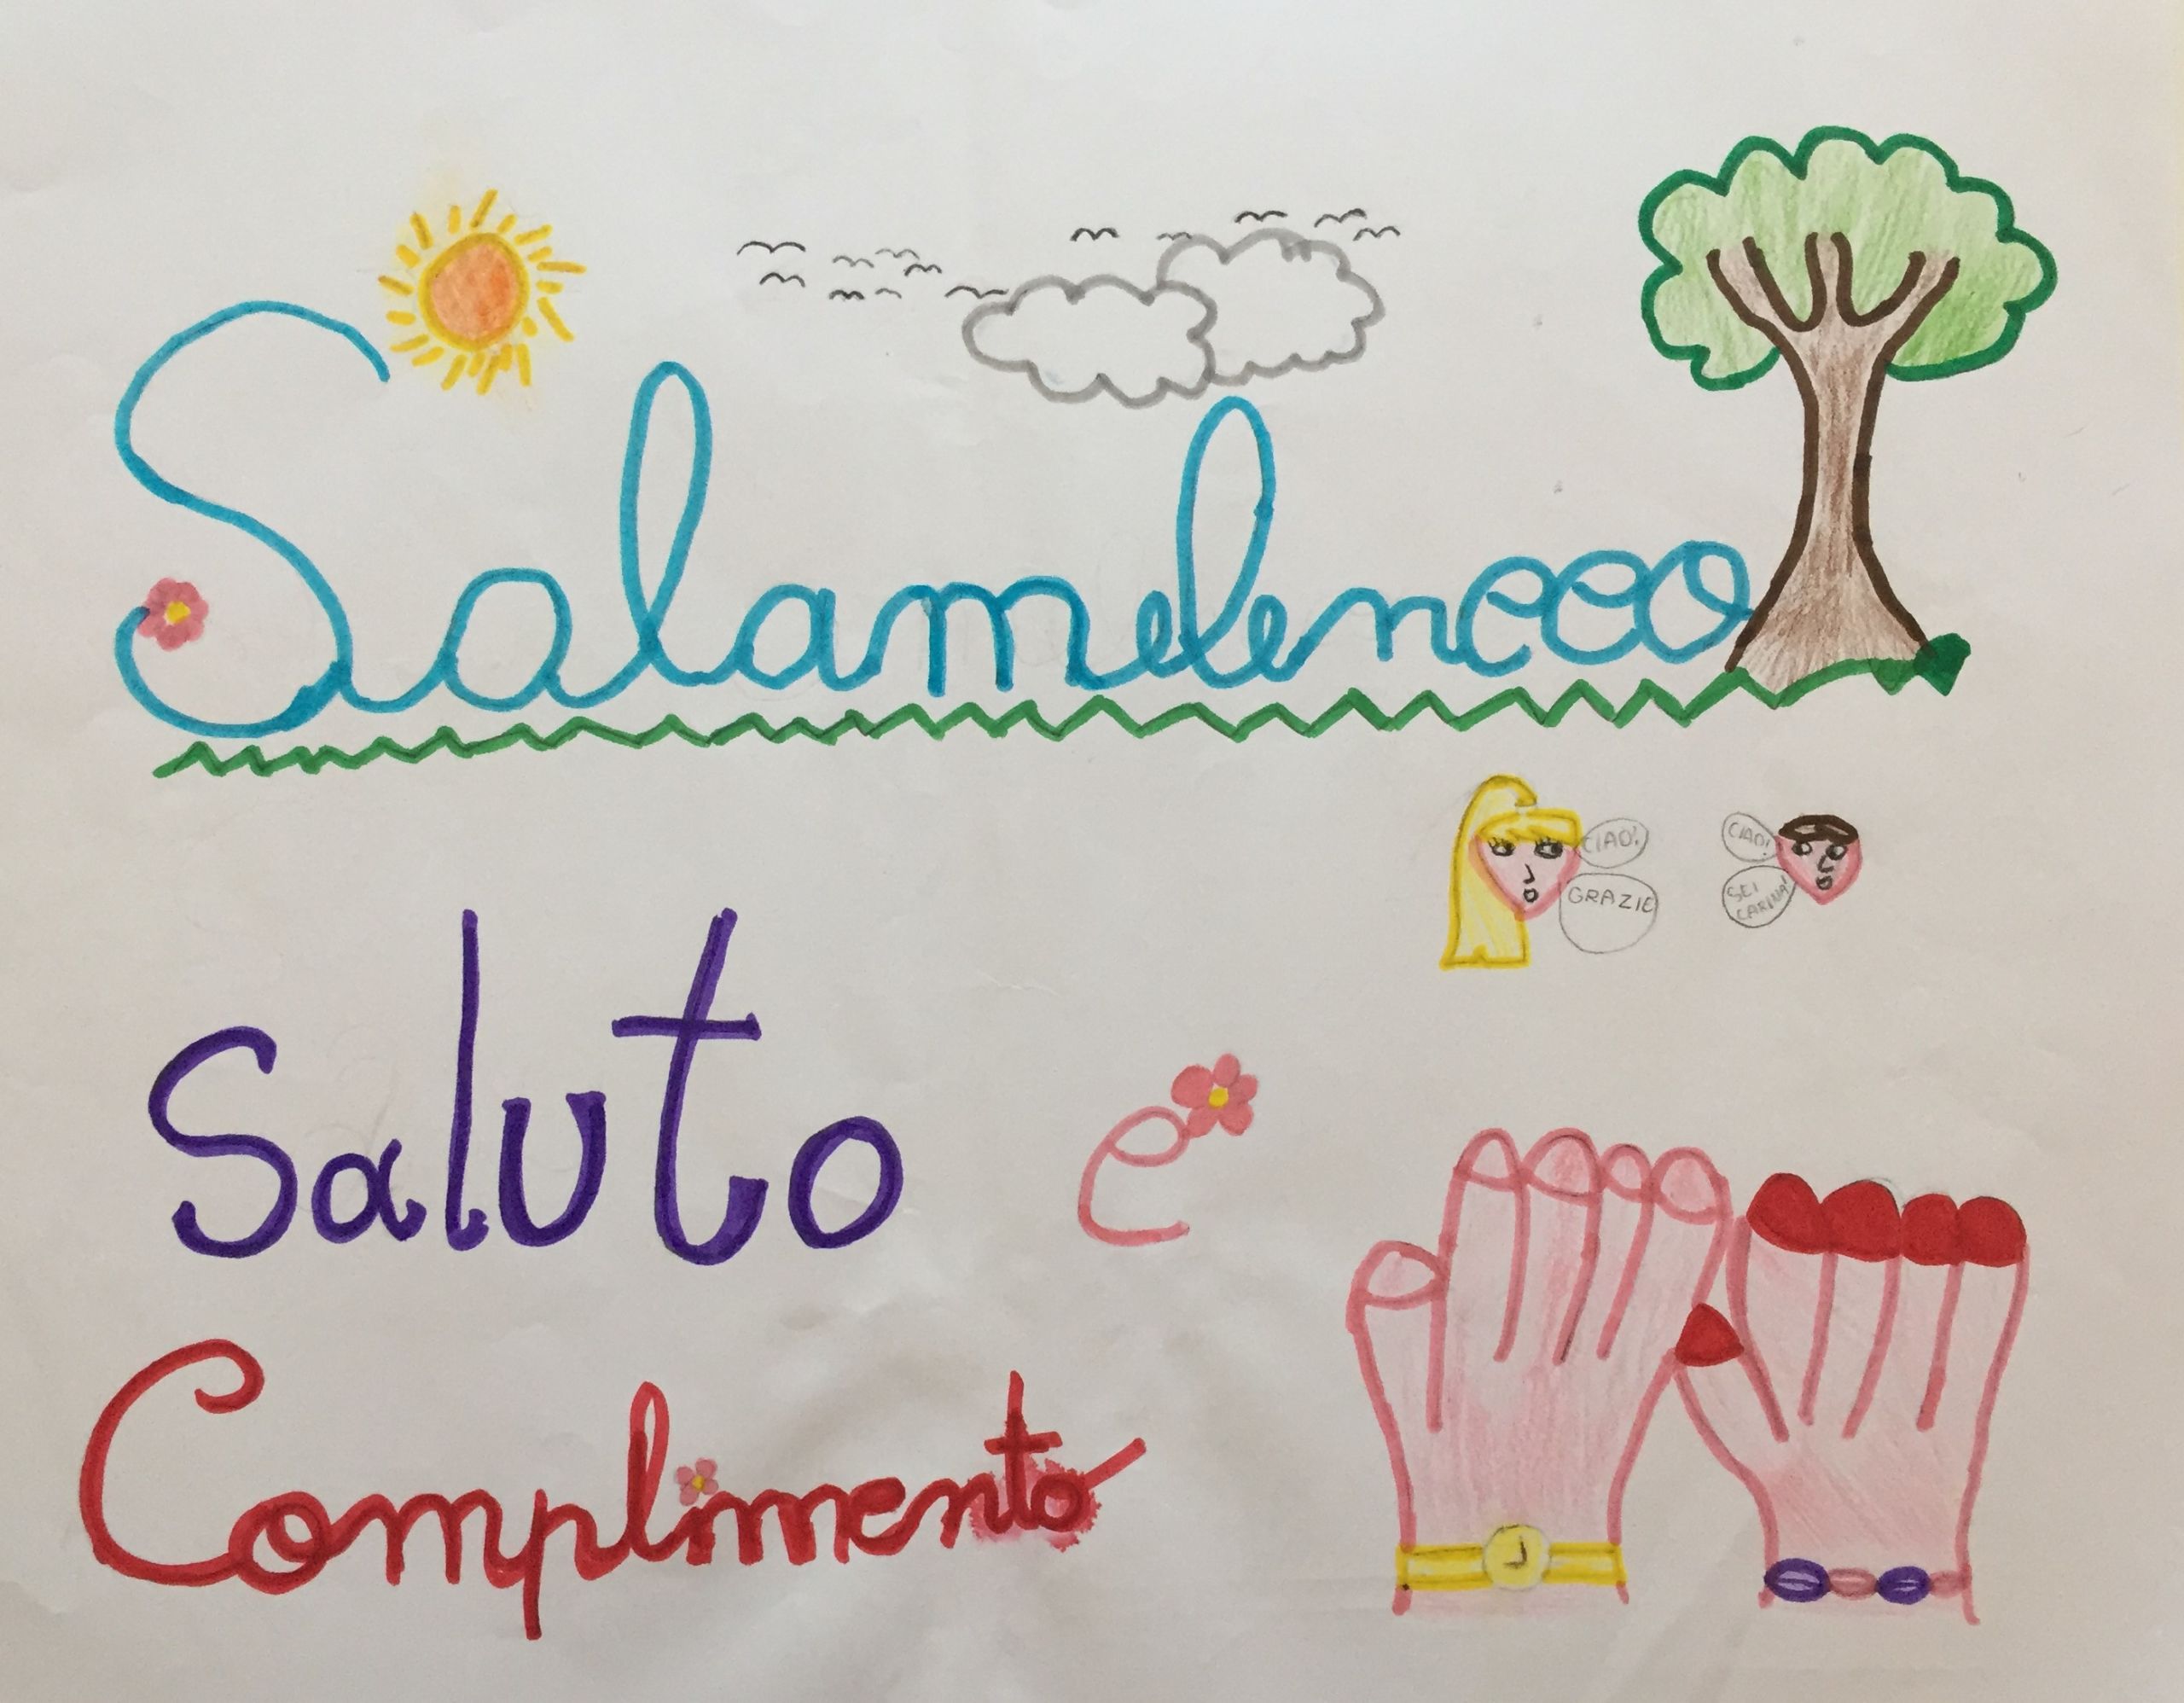 Salamelencco
CIAO! CIAO!
GRAZIE SEI CARINA!
Saluto e
Complimento